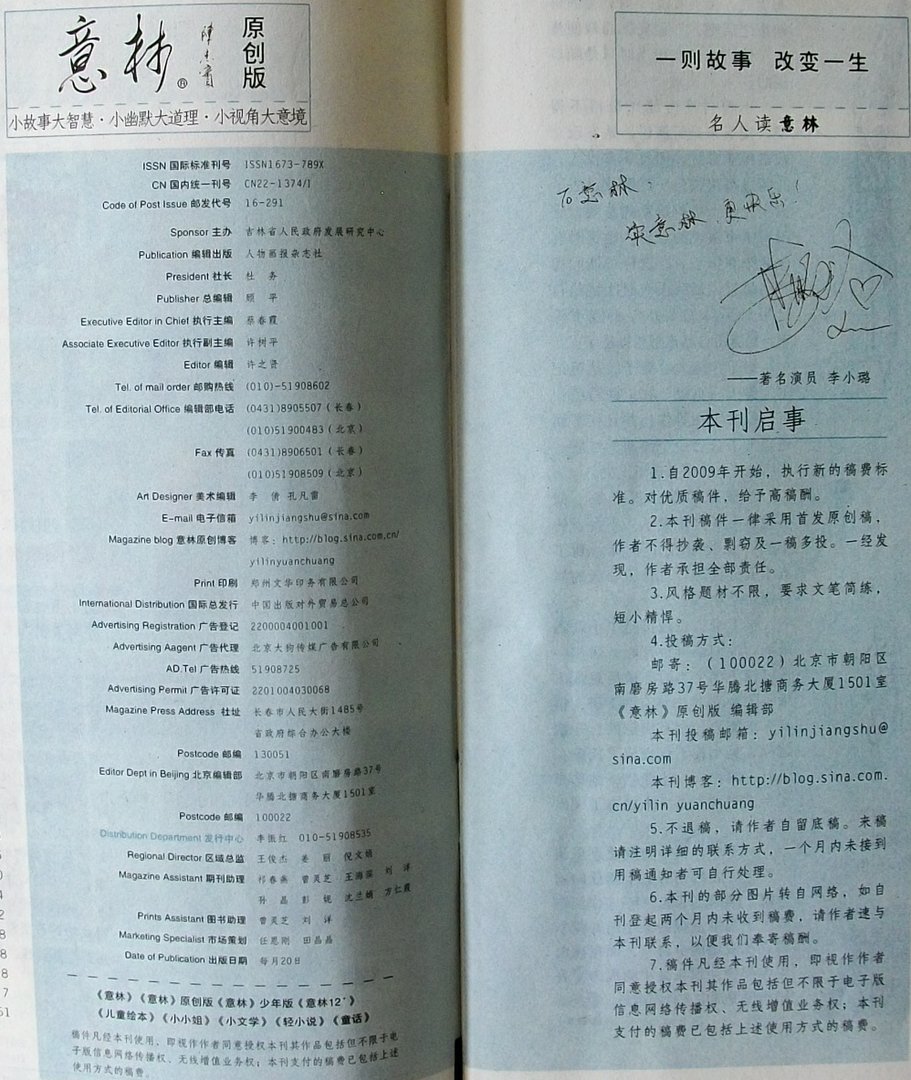 意林®
原创版
小故事大智慧·小幽默大道理·小视角大意境
ISSN 国际标准刊号 ISSN1673-789X
CN 国内统一刊号 CN22-1374/I
Code of Post Issue 邮发代号 16-291
Sponsor 主办 吉林省人民政府发展研究中心
Publication 编辑出版 人物画报杂志社
President 社长 杜 务
Publisher 总编辑 顾 平
Executive Editor in Chief 执行主编 蔡春霞
Associate Executive Editor 执行副主编 许树平
Editor 编辑 许之贤
Tel. of mail order 邮购热线 (010)-51908602
Tel. of Editorial Office 编辑部电话 (0431)8905507(长春)
(010)51900483(北京)
Fax 传真 (0431)8906501(长春)
(010)51908509(北京)
Art Designer 美术编辑 李 倩 孔凡雷
E-mail 电子信箱 yilinjiangshu@sina.com
Magazine blog 意林原创博客 博客:http://blog.sina.com.cn/
yilinyuanchuang
Print 印刷 郑州文华印务有限公司
International Distribution 国际总发行 中国出版对外贸易总公司
Advertising Registration 广告登记 2200004001001
Advertising Aagent 广告代理 北京大狗传媒广告有限公司
AD.Tel 广告热线 51908725
Advertising Permit 广告许可证 2201004030068
Magazine Press Address 社址 长春市人民大街1485号
省政府综合办公大楼
Postcode 邮编 130051
Editor Dept in Beijing 北京编辑部 北京市朝阳区南磨房路37号
华腾北搪商务大厦1501室
Postcode 邮编 100022
Distribution Department 发行中心 李振红 010-51908535
Regional Director 区域总监 王俊杰 姜 丽 倪文娟
Magazine Assistant 期刊助理 祁春燕 曾灵芝 王海霞 刘 洋
孙 晶 彭 锟 沈兰娟 方仁霞
Prints Assistant 图书助理 曾灵芝 刘 洋
Marketing Specialist 市场策划 任恩刚 田晶晶
Date of Publication 出版日期 每月20日
《意林》《意林》原创版《意林》少年版《意林12+》
《儿童绘本》《小小姐》《小文学》《轻小说》《童话》
稿件凡经本刊使用、即视作作者同意授权本刊其作品包括但不限于电
子版信息网络传播权、无线增值业务权;本刊支付的稿费已包括上述
使用方式的稿费。
一则故事 改变一生
名人读意林
——著名演员 李小璐
本刊启事
1.自2009年开始,执行新的稿费标
准。对优质稿件,给予高稿酬。
2.本刊稿件一律采用首发原创稿,
作者不得抄袭、剽窃及一稿多投。一经发
现,作者承担全部责任。
3.风格题材不限,要求文笔简练,
短小精悍。
4.投稿方式:
邮寄:(100022)北京市朝阳区
南磨房路37号华腾北搪商务大厦1501室
《意林》原创版 编辑部
本刊投稿邮箱:yilinjiangshu@
sina.com
本刊博客:http://blog.sina.com.
cn/yilin yuanchuang
5.不退稿,请作者自留底稿。来稿
请注明详细的联系方式,一个月内未接到
用稿通知者可自行处理。
6.本刊的部分图片转自网络,如自
刊登起两个月内未收到稿费,请作者速与
本刊联系,以便我们奉寄稿酬。
7.稿件凡经本刊使用,即视作作者
同意授权本刊其作品包括但不限于电子版
信息网络传播权、无线增值业务权;本刊
支付的稿费已包括上述使用方式的稿费。